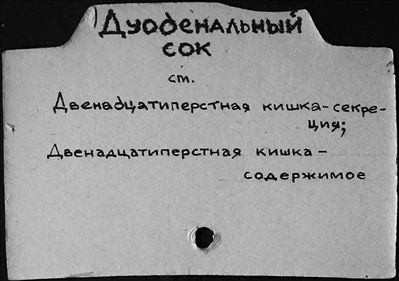 Дуоденальный
сок
ст.
Двенадцатиперстная кишка-секре-
ция;
Двенадцатиперстная кишка -
содержимое